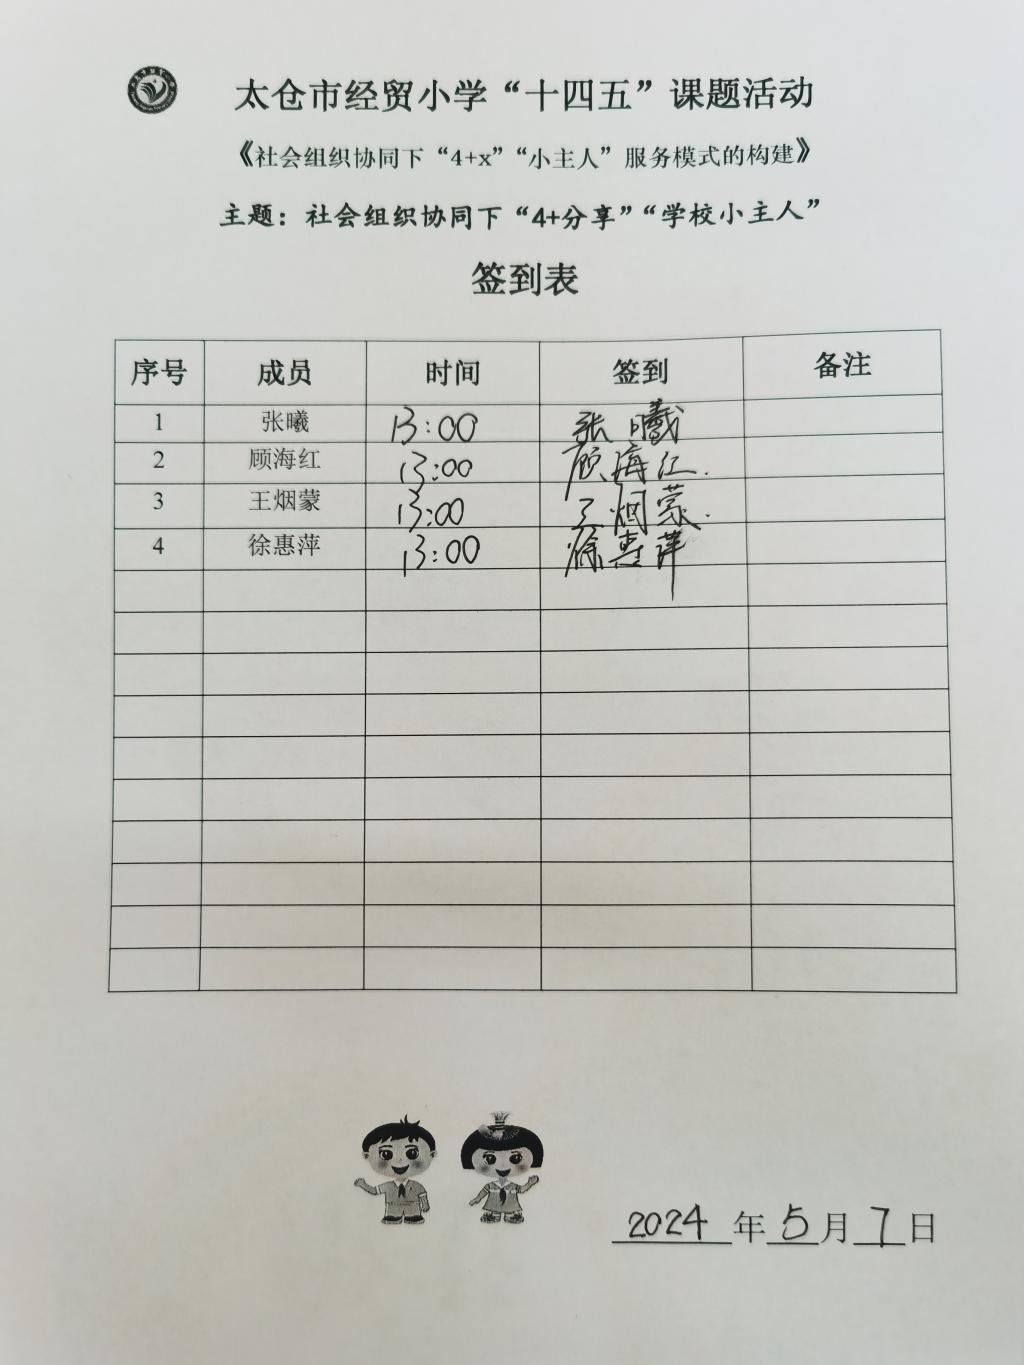 太仓市经贸小学“十四五”课题活动
《社会组织协同下“4+x”“小主人”服务模式的构建》
主题：社会组织协同下“4+分享”“学校小主人”
签到表
序号 成员 时间 签到 备注
1 张曦 13:00 张曦
2 顾海红 13:00 顾海红.
3 王烟蒙 13:00 王烟蒙.
4 徐惠萍 13:00 徐惠萍
2024年5月7日